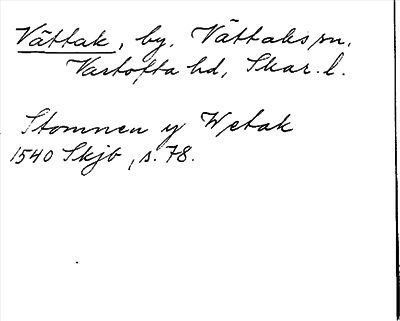 Vättak, by. Vättaks sn.
Vartofta hd, Skar. l.
Stommen y Wetak
1540 Skjb, s. 78.